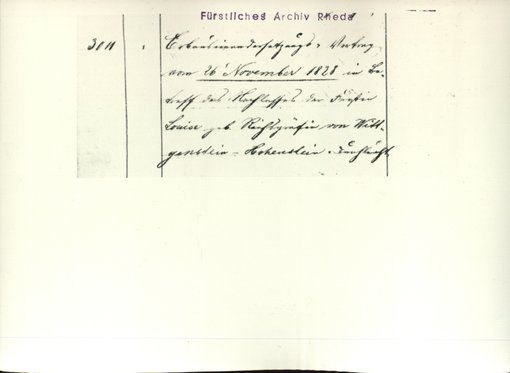 Fürstliches Archiv Rheda
3011
Erbauseinandersetzungs-Vertrag
vom 26' November 1828 in Be-
treff des Nachlasses der Fürstin
Louise geb. Reichsgräfin von Witt-
genstein-Hohenstein. Durchlaucht